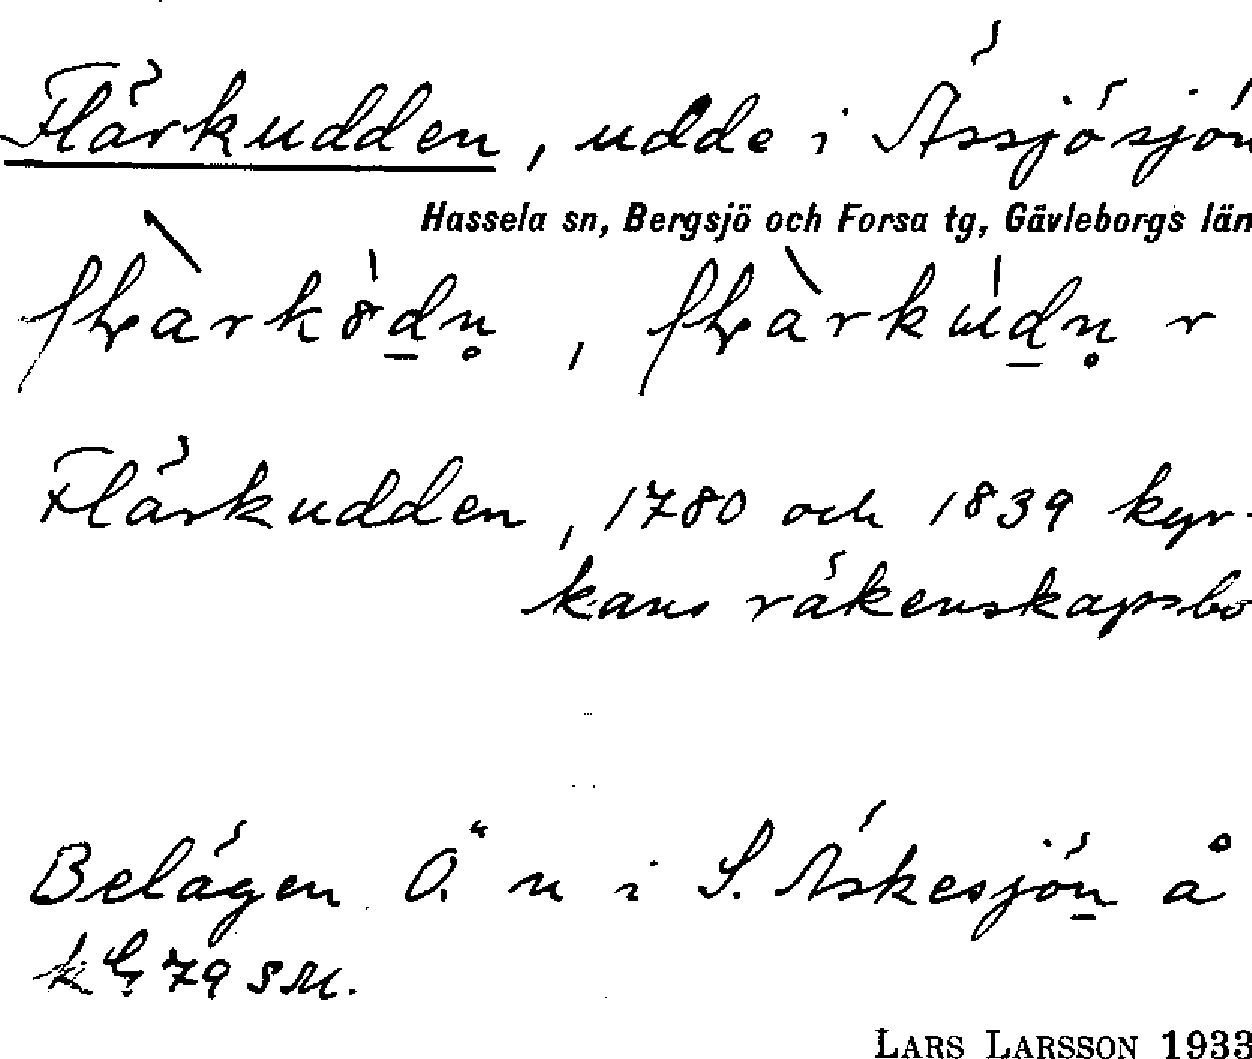 Flärkudden, udde i Ässjösjön
Hassela sn, Bergsjö och Forsa tg, Gävleborgs län
Flärkudden, 1780 och 1839 kyr-
kans räkenskapsbo
Belägen Ö." n i S. Äskesjön å
79 SM.
LARS LARSSON 1933